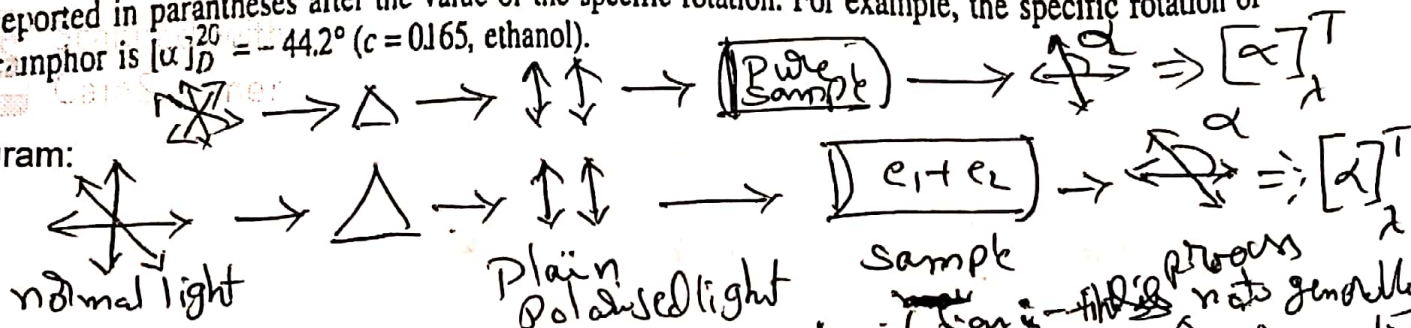 eported in parantheses after the value of the specific rotation. For example, the specific rotation of
mphor is [α]20D = – 44.2° (c = 0.165, ethanol).
Pure sample α ⇒ [α]Tλ
ram:
e1 + e2 α ⇒ [α]Tλ
normal light Plain Polarised light sample
process not